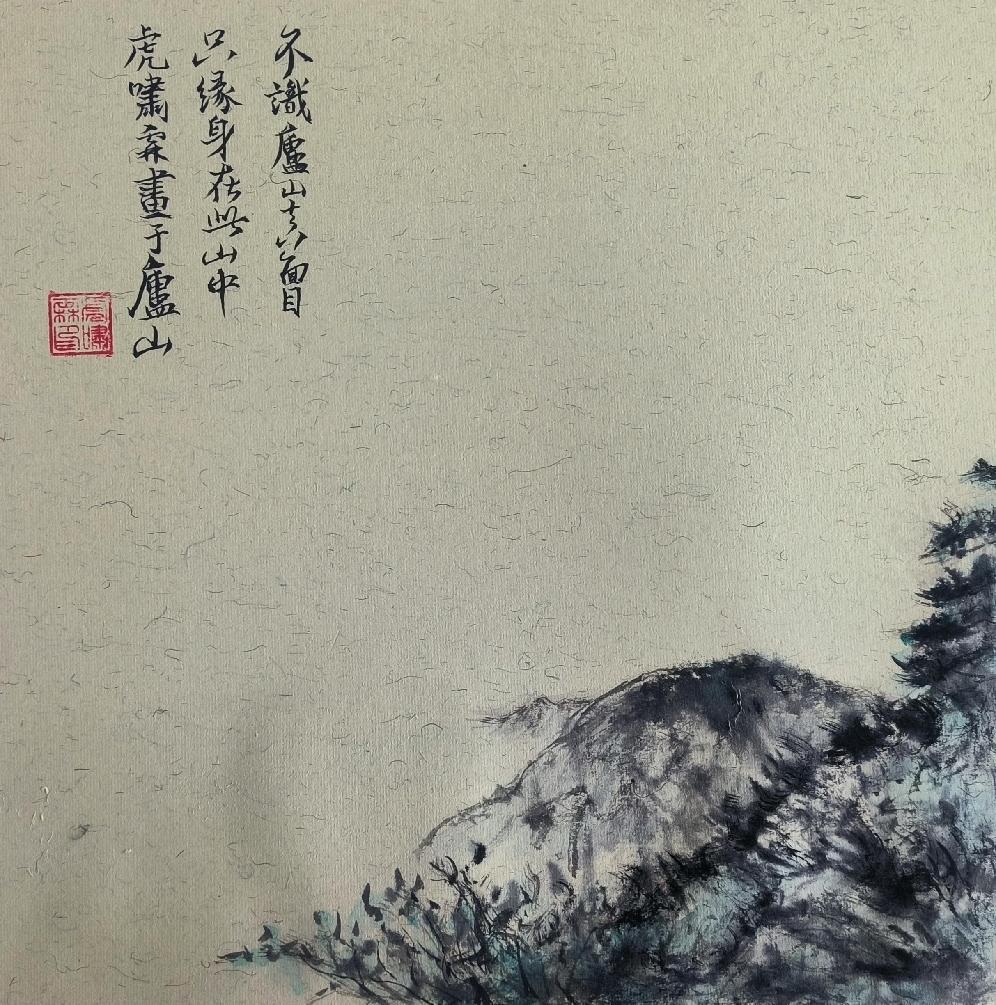 不識廬山真面目
只緣身在此山中
虎嘯霖畫于廬山
虎嘯
霖印